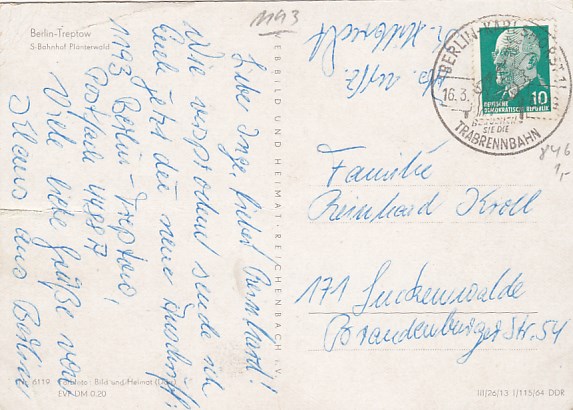 1193
Berlin-Treptow
S-Bahnhof Plänterwald
Liebe Inge, lieber Bernhard!
Wie versprochend sende ich
Euch jetzt die neue Anschrift:
1193 Berlin-Treptow,
Postfach 44887
Viele liebe Grüße von
Klaus aus Berlin
BILD UND HEIMAT · REICHENBACH i. V.
6119 Bild und Heimat
EVP DM 0.20
BERLIN-KARLSHORST 1
16.3.
BESUCHEN
SIE DIE
TRABRENNBAHN
10
DEUTSCHE
DEMOKRATISCHE REPUBLIK
846
1,-
Familie
Reinhard Kroll
171 Luckenwalde
Brandenburger Str. 54
III/26/13 I/115/64 DDR